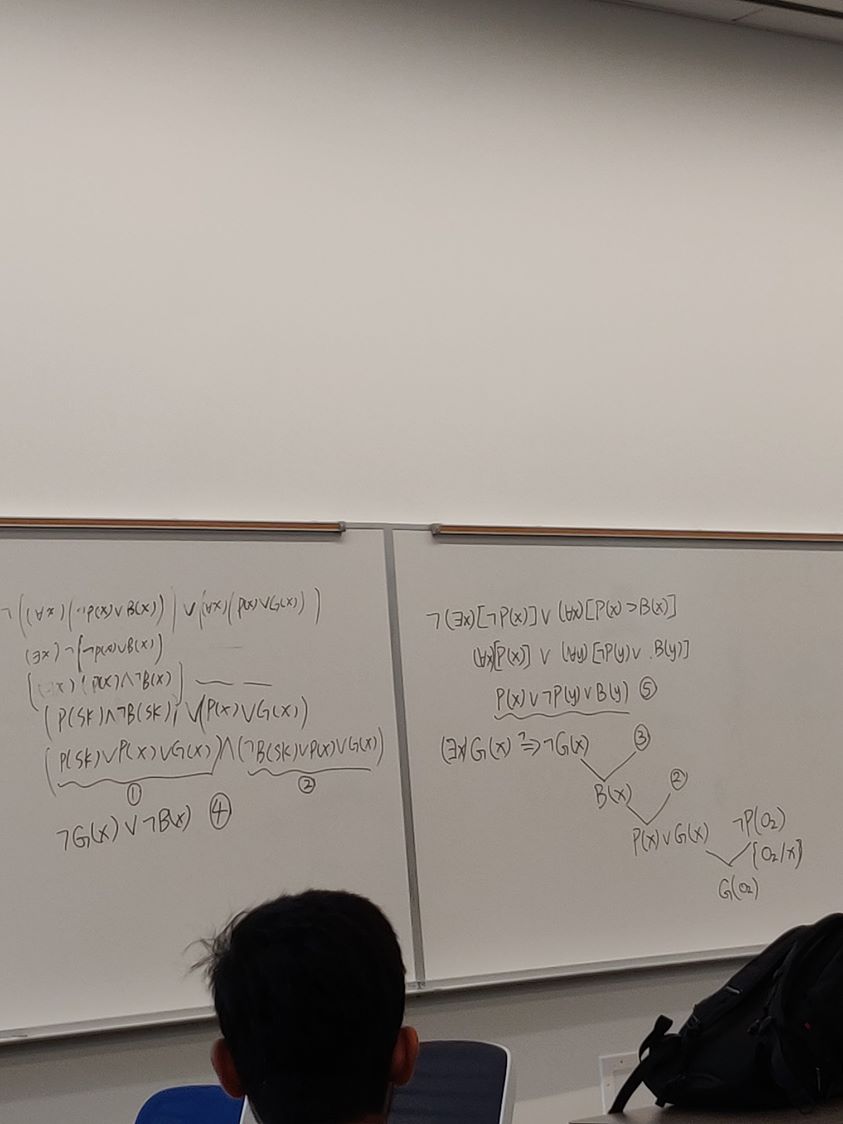 ¬((∀x)(¬P(x)∨B(x))) ∨ (∀x)(P(x)∨G(x)))
(∃x)¬[¬P(x)∨B(x)]
[(∃x)(P(x)∧¬B(x)]
(P(SK)∧¬B(SK)) ∨(P(x)∨G(x))
(P(SK)∨P(x)∨G(x))∧(¬B(SK)∨P(x)∨G(x))
① ②
¬G(x)∨¬B(x) ④
¬(∃x)[¬P(x)]∨(∀x)[P(x)⊃B(x)]
(∀x)[P(x)] ∨ (∀y)[¬P(y)∨.B(y)]
P(x)∨¬P(y)∨B(y) ⑤
(∃x)G(x) ?⇒ ¬G(x) ③
B(x) ②
P(x)∨G(x) ¬P(O₂)
{O₂/x}
G(O₂)